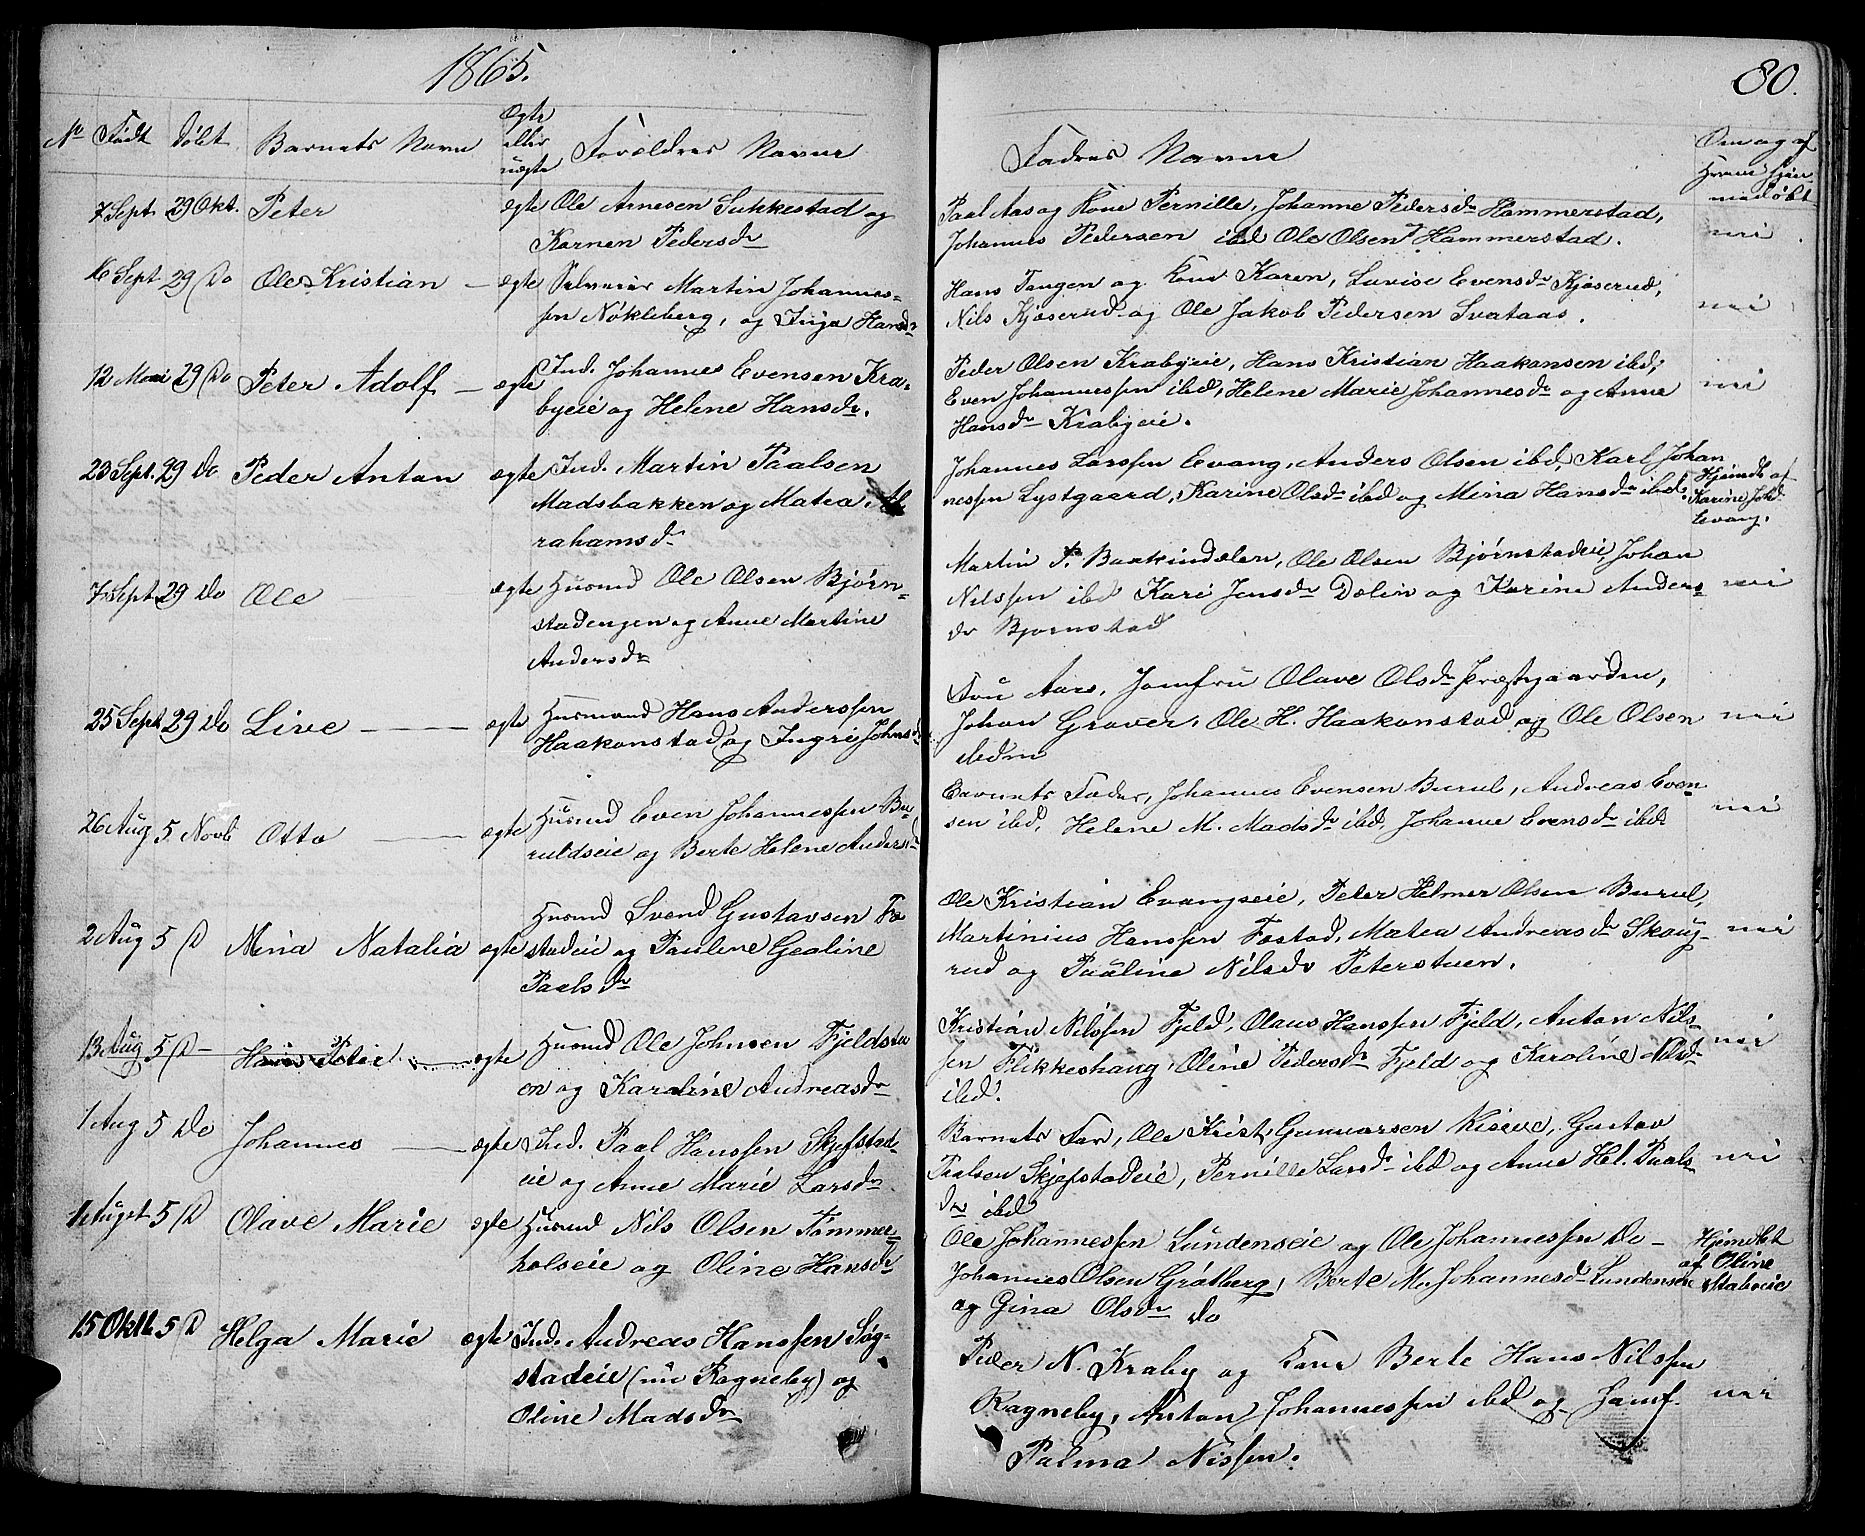 1865.
80.
No Født Døbt Barnets Navn Ægte eller uægte Forældres Navne
Fadres Navne Om og af Hvem hjemmedøbt
7 Sept. 29 Okt. Peter ægte Ole Arnesen Sukkestad og
Karnen Pedersdr
Paal Aas og Kone Pernille, Johanne Pedersdr Hammerstad,
Johannes Pedersen ibd Ole Olsen Hammerstad. nei
16 Sept 29 Do Ole Kristian ægte Selveier Martin Johannes-
sen Nøkleberg, og Inga Hansdr
Hans Tangen og Kone Karen, Lovise Evensdr Kjøserud,
Nils Kjøserud og Ole Jakob Pedersen Svataas. nei
12 Mai 29 Do Peter Adolf ægte Ind. Johannes Evensen Kra-
byeie og Helene Hansdr.
Peder Olsen Krabyeie, Hans Kristian Haakonsen ibd,
Even Johannessen ibd, Helene Marie Johannesdr og Anne nei
Hansdr Krabyeie.
23 Sept. 29 Do Peder Anton ægte Ind. Martin Paalsen
Madsbakken og Matea Ab
rahamsdr
Johannes Larssen Evang, Anders Olsen ibd, Karl Johan
nessen Lystgaard, Karine Olsdr ibd og Mina Hansdr ibd. Hjemdt af
Karine Johd
Evang.
7 Sept 29 Do Ole ægte Husmd Ole Olsen Bjørn-
stadengen og Anne Martine
Andersdr
Martin P. Baakindalen, Ole Olsen Bjørnstadeie Johan
Nilssen ibd Kari Jensdr Dælin og Karine Anders nei
dr Bjørnstad
25 Sept 29 Do Live ægte Husmand Hans Anderssen
Haakonstad og Ingri Johnsd
Fru Aars, Jomfru Olave Olsdr Præstgaarden,
Johan Graver, Ole H. Haakonstad og Ole Olsen nei
ibdm
26 Aug 5. Novb Otto ægte Husmd Even Johannessen Bu-
ruldseie og Berte Helene Andersd
Barnets Fader, Johannes Evensen Burul, Andreas Even
sen ibd, Helene M. Madsdr ibd, Johanne Evensdr ibd nei
2 Aug 5 D Mina Natalia ægte Husmd Svend Gustavsen Fæ
stadeie og Pauline Gealine
Paalsdr
Ole Kristian Evangseie, Peter Helmer Olsen Burul,
Martinius Hanssen Fæstad, Matea Andreasdr Skaug- nei
rud og Pauline Nilsdr Peterstuen.
13 Aug 5 D Hans Peter ægte Husmd Ole Johnsen Fjeldsta
en og Karoline Andreasdr
Kristian Nilssen Fjeld, Olaus Hanssen Fjeld, Anton Nils-
sen Flikkeshaug, Oline Pedersdr Fjeld og Karoline Nilsdr nei
ibd.
1 Aug 5 Do Johannes ægte Ind. Paal Hanssen Skjefstad-
eie og Anne Marie Larsdr
Barnets Far, Ole Krist. Gunnarsen Kiseve, Gustav
Paalsen Skjefstadeie, Pernille Larsdr ibd og Anne Hel. Paals- nei
dr ibd
1 Augst 5 D Olave Marie ægte Husmd Nils Olsen Tømmer-
holseie og Oline Hansdr
Ole Johannessen Lundenseie og Ole Johannessen Do - Hjemdbt
Johannes Olsen Grøtberg, Berte M. Johannesdr Lundenseie af Oline
og Gina Olsdr do Stabeeie
15 Oktb 5 D Helga Marie ægte Ind. Andreas Hanssen Søg-
stadeie (nu Ragneby) og
Oline Madsdr
Peder N. Kraby og Kone Berte Hans Nilssen
Ragneby, Anton Johannessen ibd og Jomf. nei
Palma Nissen.